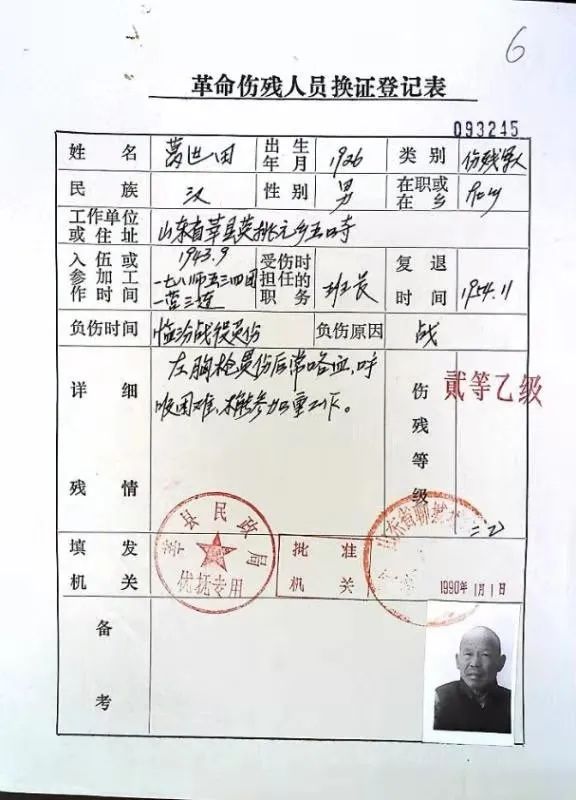 6
革命伤残人员换证登记表
093245
姓名 葛世田 出生年月 1926 类别 伤残军人
民族 汉 性别 男 在职或在乡 在乡
工作单位或住址 山东省莘县英桃元乡五口寺
入伍或参加工作时间 1943.9 一七八师五三四团一营三连 受伤时担任的职务 班长 复退时间 1954.11
负伤时间 临汾战役负伤 负伤原因 战
详细残情 左胸枪负伤后常咯血,呼
吸困难,不能参加重工作。
伤残等级 贰等乙级
二乙
填发机关 莘县民政局
优抚专用
批准机关 山东省聊城
1990年1月1日
备考